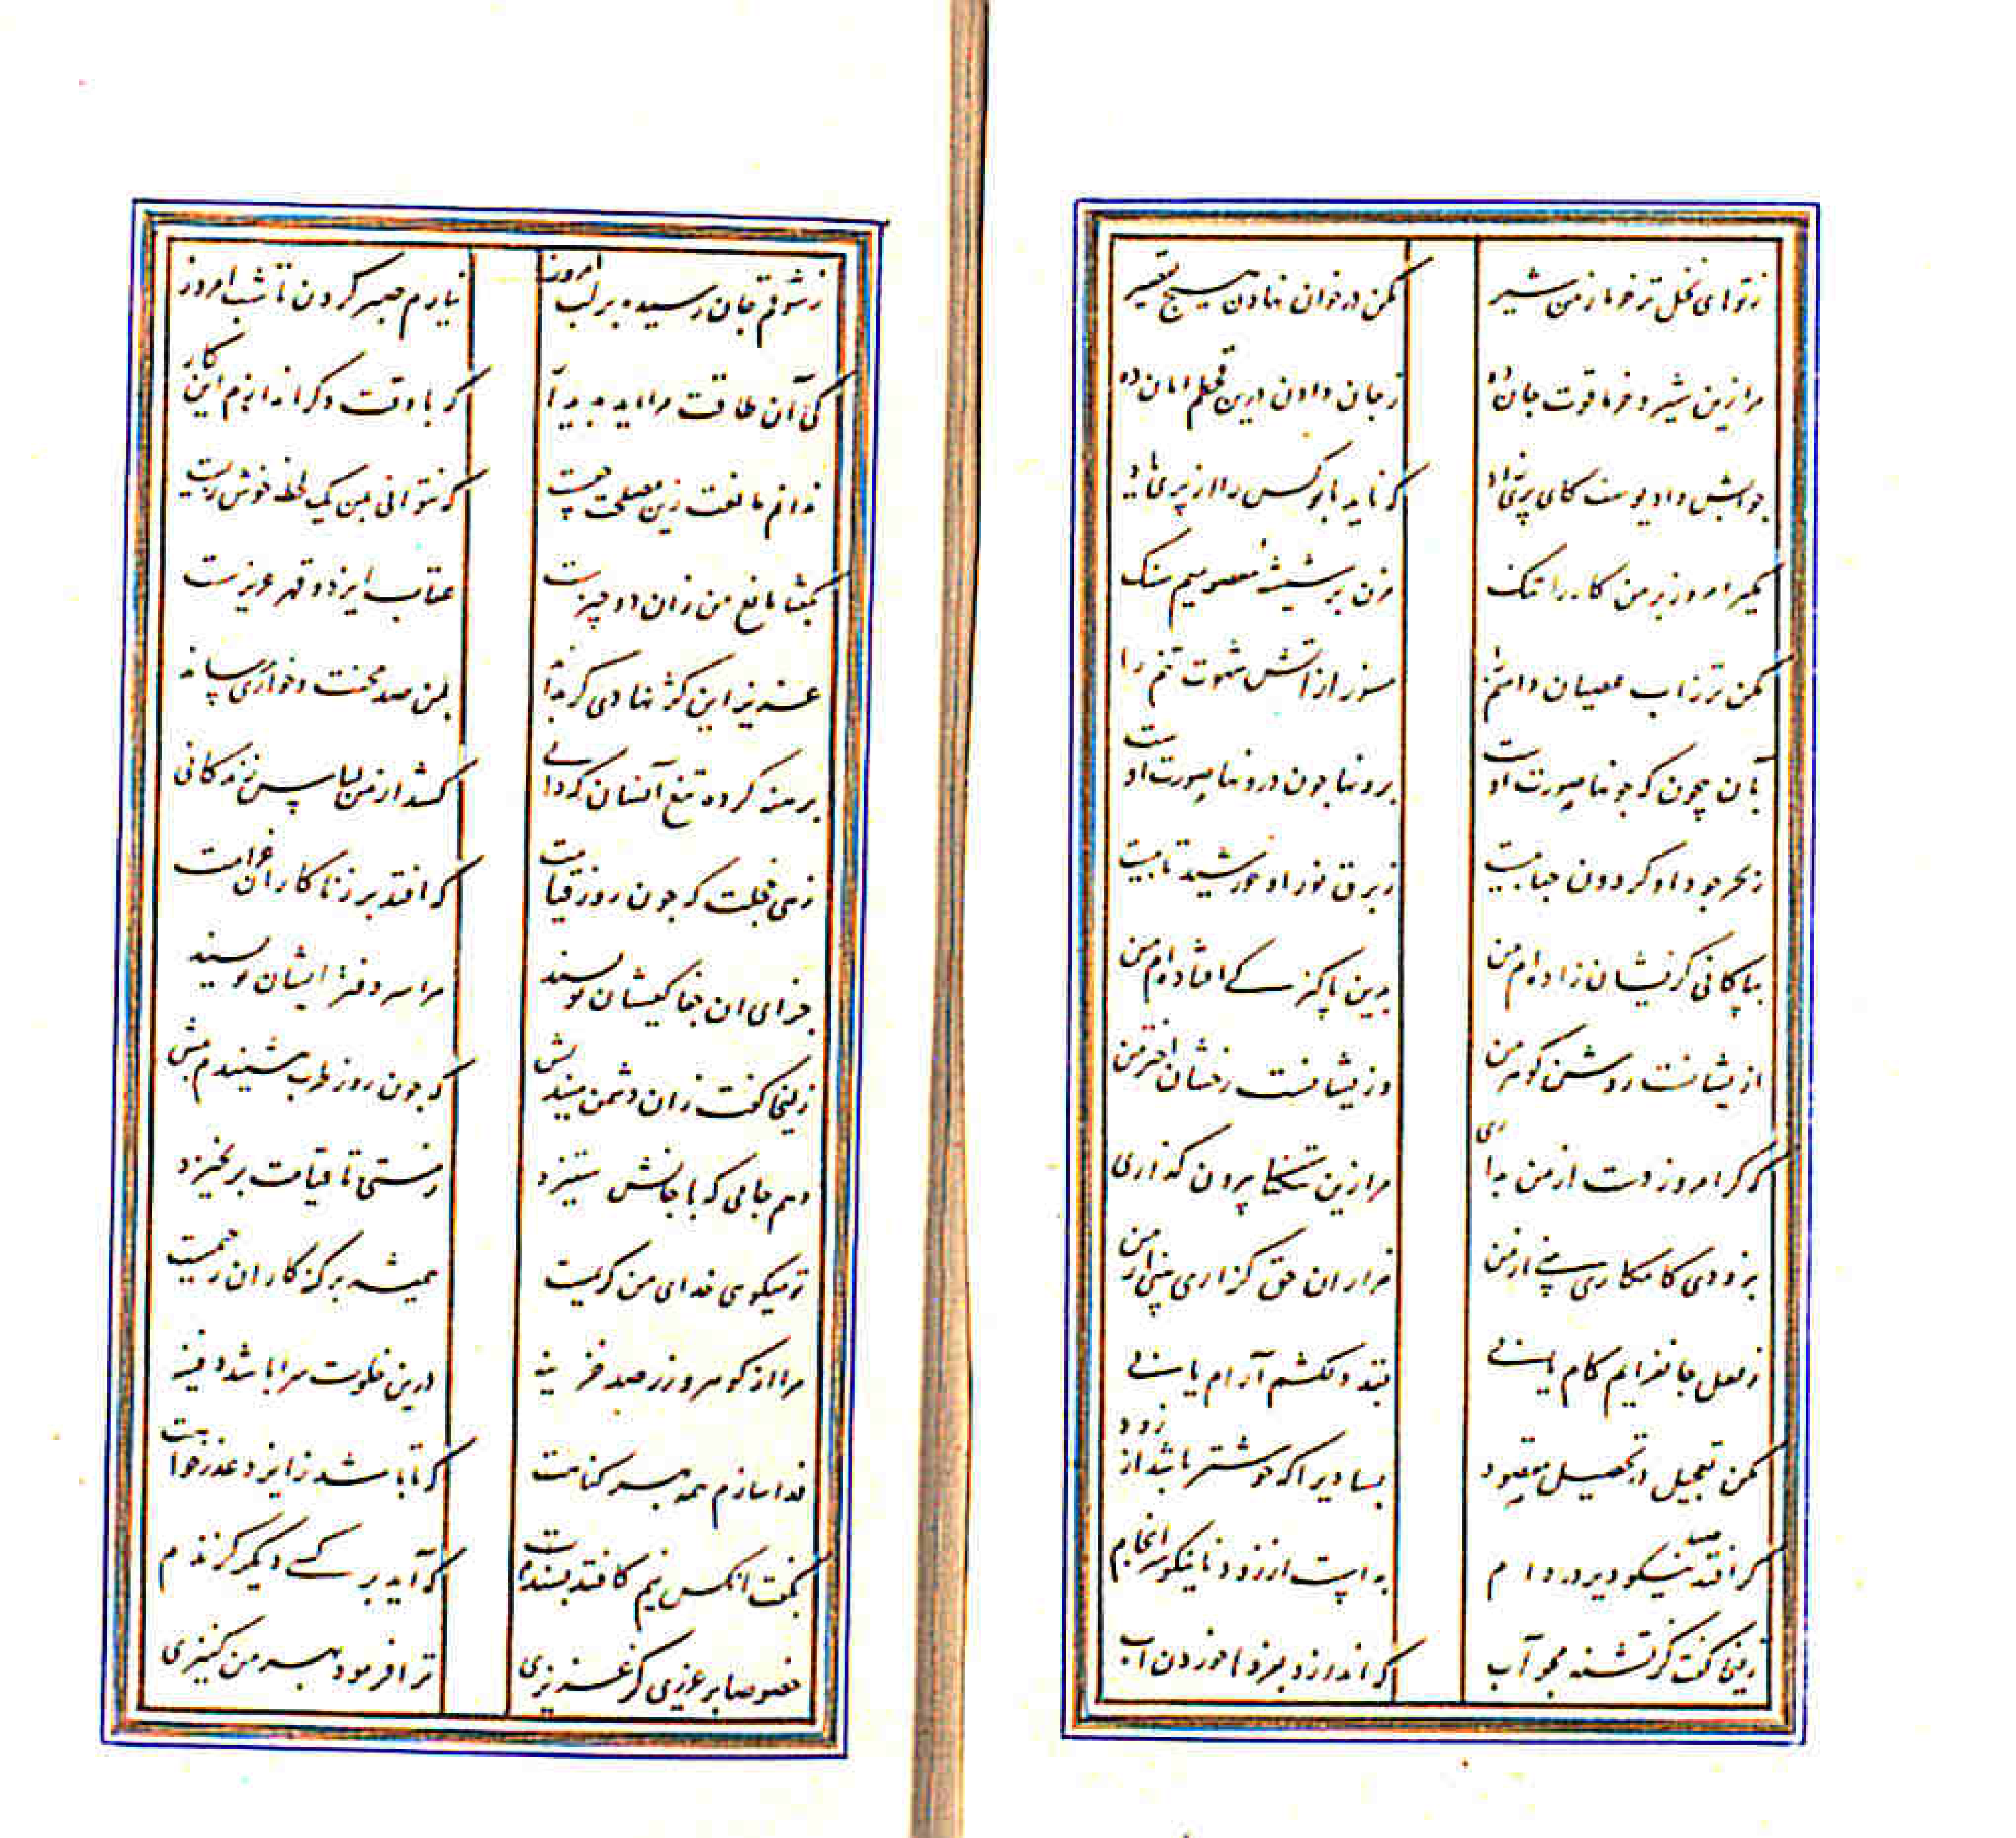 ز تو ای نخل تر خرما ز من شیر مکن در خوان نهادن هیچ تقصیر
مرا زین شیر و خرما قوت جان ده ز جان دادن درین قحطم امان ده
جوابش داد یوسف کای پریزاد که ناید با تو کس را از پری یاد
مگیر امروز بر من کار را تنک مزن بر شیشهٔ معصومیم سنک
مکن تر ز اب عصیان دامنم را مسوز از آتش شهوت تنم را
بآن بیچون که چونها صورت اوست برونها چون درونها صورت اوست
ز بحر جود او کردون حبابیست ز برق نور او خورشید تابیست
بپاکانی کزیشان زاده‌ام من بدین پاکیزکی افتاده‌ام من
ازیشانست روشن کوهر من وزیشانست رخشان اختر من
که کر امروز دست از من بداری مرا زین تنکنا بیرون کذاری
بزودی کامکاری بینی از من هزاران حق کزاری بینی از من
ز لعل جانفزایم کام یابی بقد دلکشم آرام یابی
مکن تعجیل در تحصیل مقصود بسا دیرا که خوشتر باشد از زود
کر افتد صید نیکو دیر در دام به است از زود نانیکو سرانجام
زلیخا کفت کز تشنه مجو آب که اندازد بفردا خوردن آب
ز شوقم جان رسیده بر لب امروز نیارم صبر کردن تا شب امروز
کی آن طاقت مرا آید پدیدار که با وقت دکر اندازم این کار
ندانم مانعت زین مصلحت چیست که نتوانی بمن یک لحظه خوش زیست
بکفتا مانع من زان دو چیزست عتاب ایزد و قهر عزیزست
عزیز این کژنهادی کر بداند بمن صد محنت و خواری رساند
برهنه کرده تیغ آنسان که دانی کشد از من لباس زندکانی
زهی خجلت که چون روز قیامت که افتد بر زناکاران غرامت
جزای ان جفاکیشان نویسند مرا سر دفتر ایشان نویسند
زلیخا کفت زان دشمن میندیش که چون روز طرب بنشیندم پیش
دهم جامی که با جانش ستیزد ز مستی تا قیامت برنخیزد
تو میکوی خدای من کریمست همیشه بر کنه‌کاران رحیمست
مرا از کوهر و زر صد خزینه درین خلوت سرا باشد دفینه
فدا سازم همه بهر کناهت که تا باشد ز ایزد عذرخواهت
بکفت آنکس نیم کافتد پسندم که آید بر کسی دیکر کزندم
خصوصا بر عزیزی کز عزیزی ترا فرمود بهر من کنیزی